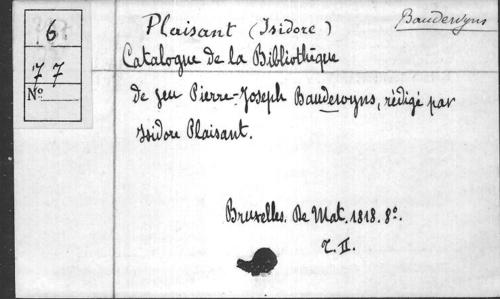 6
77
No
Plaisant (Isidore)
Bauderwyns
Catalogue de la Bibliothèque
de feu Pierre-Joseph Bauderwyns, rédigé par
Isidore Plaisant.
Bruxelles. De Mat. 1818. 8o.
T. II.